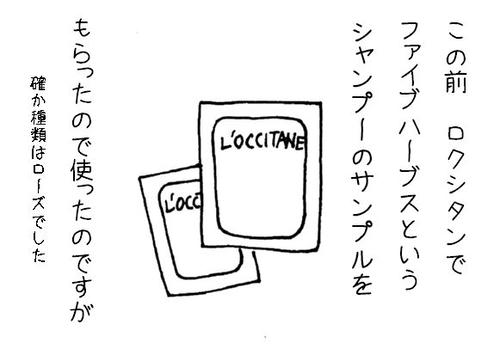 この前 ロクシタンで
ファイブハーブスという
シャンプーのサンプルを
L'OCCITANE
L'OCC
もらったので使ったのですが
確か種類はローズでした